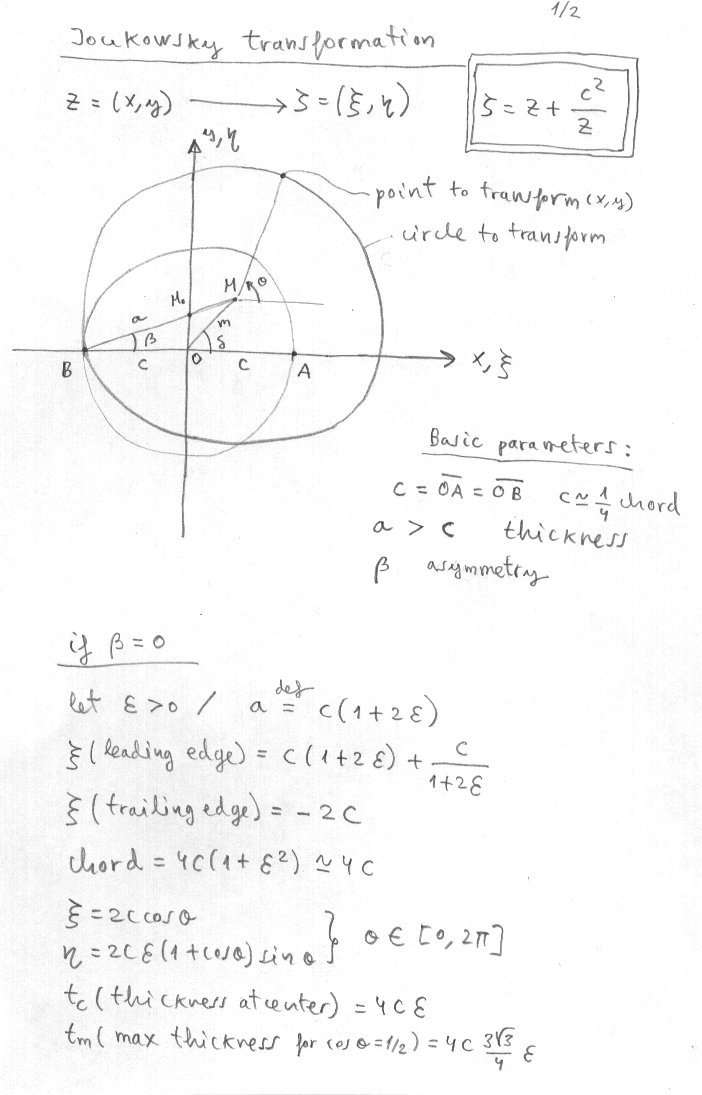 1/2
Joukowsky transformation
z = (x,y) ⟶ ζ = (ξ, η)
ζ = z + c²/z
y, η
point to transform (x,y)
circle to transform
M θ
M₀
a
m
β δ
B C O C A x, ξ
Basic parameters:
c = OA = OB c ≃ 1/4 chord
a > c thickness
β asymmetry
if β = 0
let ε > 0 / a def= c(1+2ε)
ξ (leading edge) = c(1+2ε) + c/(1+2ε)
ξ (trailing edge) = -2c
chord = 4c(1+ε²) ≃ 4c
ξ = 2c cosθ
η = 2cε(1+cosθ) sinθ } θ ∈ [0, 2π]
tc (thickness at center) = 4cε
tm (max thickness for cosθ=1/2) = 4c 3√3/4 ε